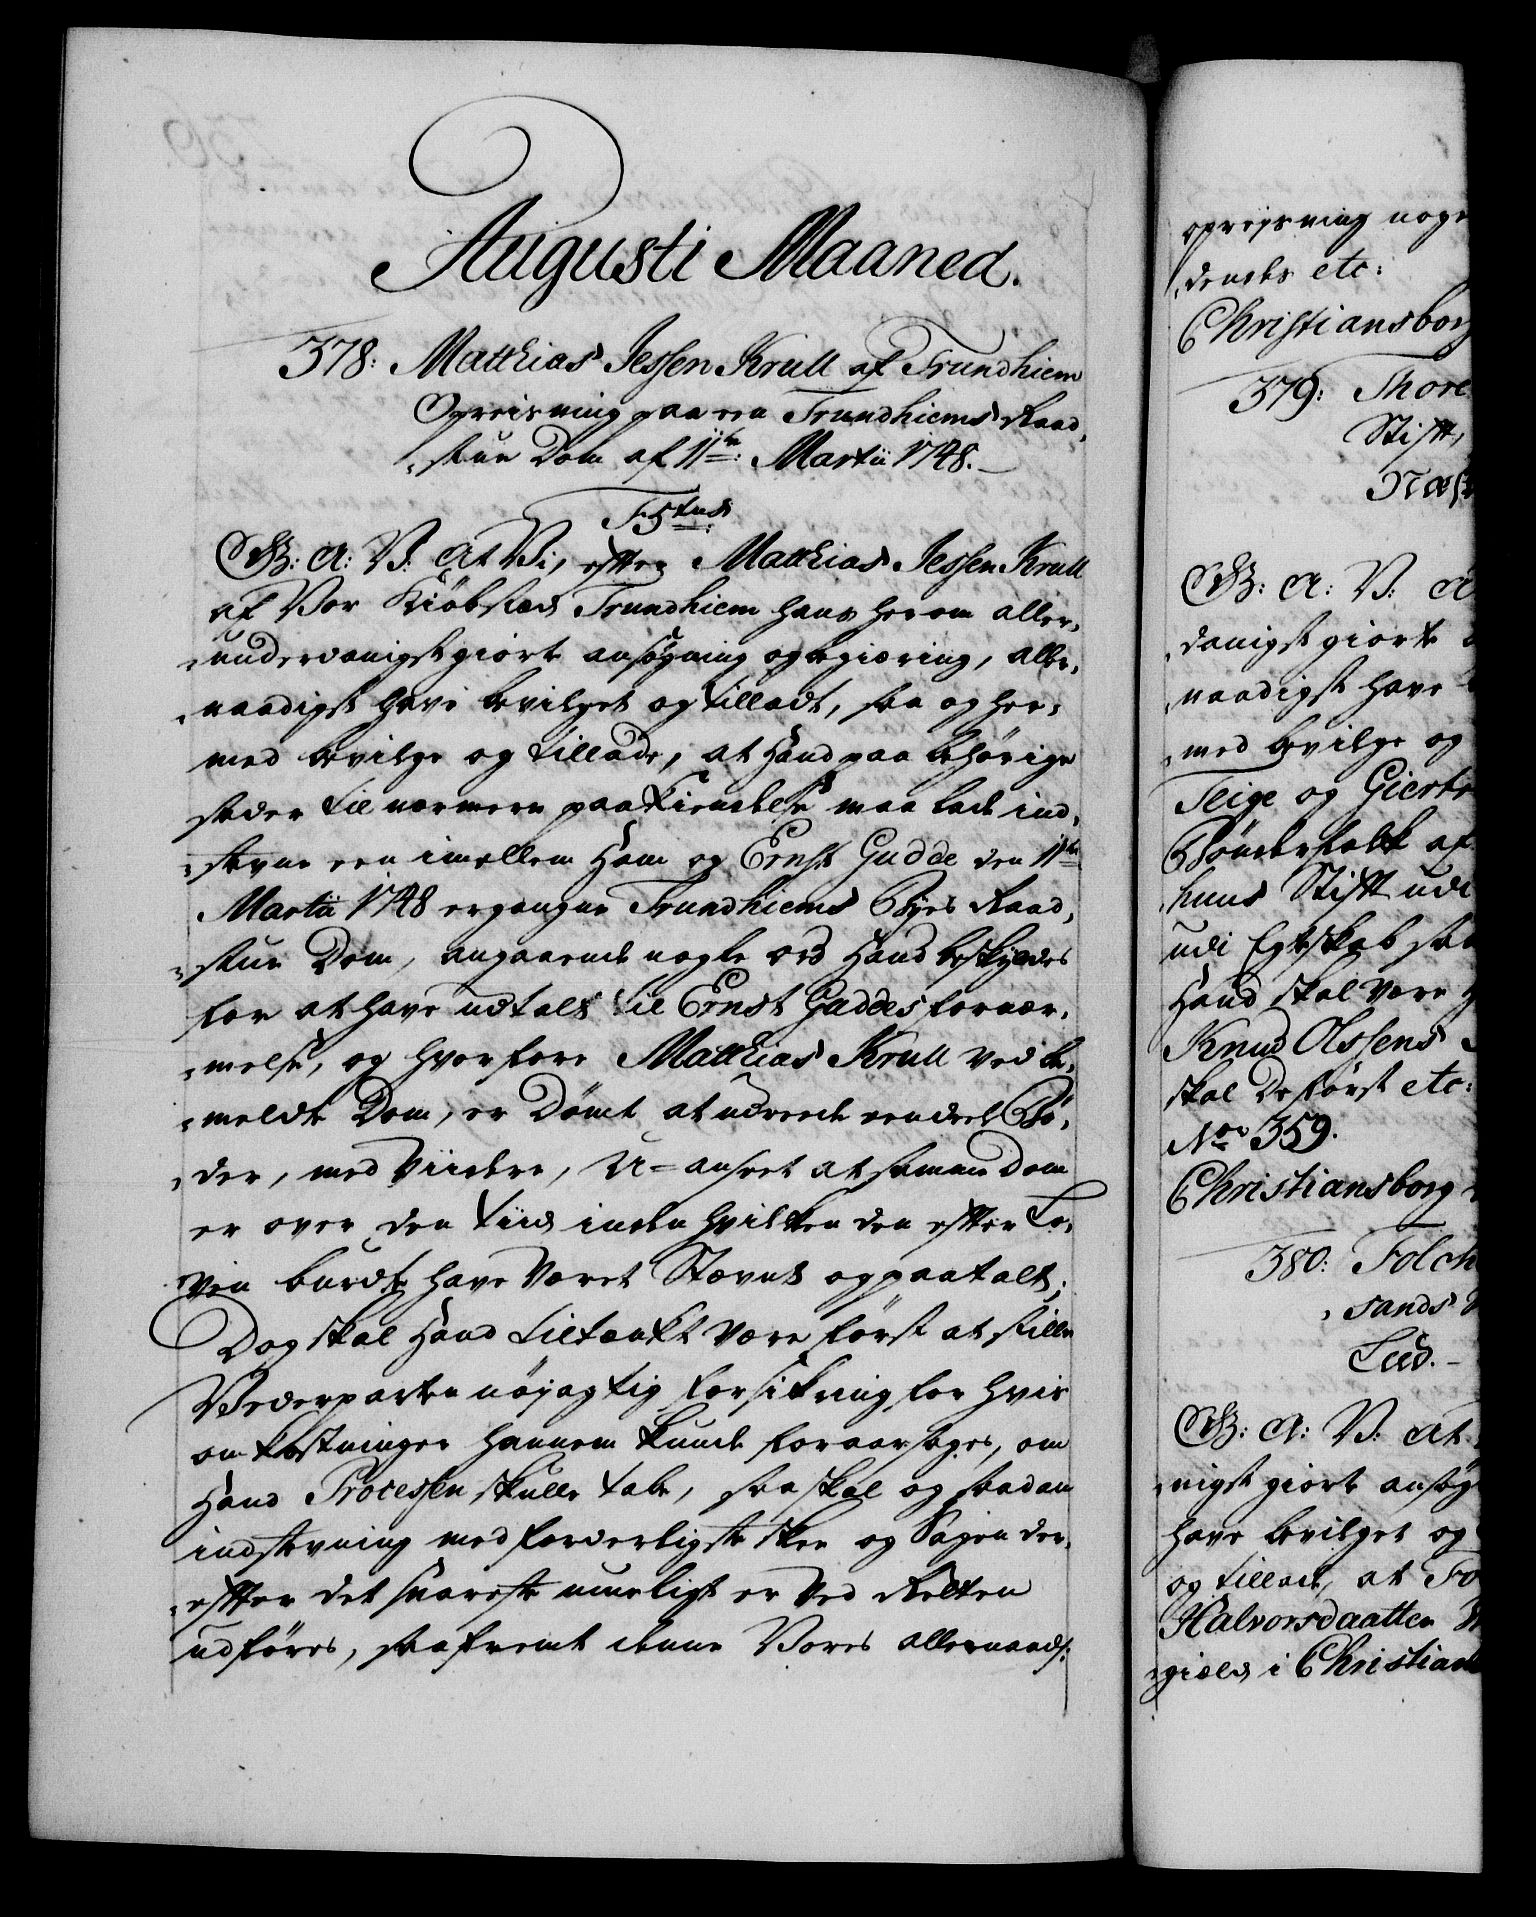 Augusti Maaned.
378: Matthias Jessen Krull af Trundhiem
Opreisning paa een Trundhiems Raad,
„stue Dom af 11te: Martii 1748.
F5tus
G: A: V: At Vi, efter Matthias Jessen Krull
af Vor Kiøbsted Trundhiem hans herom aller,
„underdanigst giorte ansøgning og begiæring, aller,
„naadigst have bevilget og tilladt, saa og her,
med bevilge og tillade, at Hand paa behørige
steder til nærmere paakiendelse maa lade ind,
„stevne een imellem Ham og Ernst Gudde den 11te
Martii 1748 ergangne Trundhiems Byes Raad,
„stue Dom, angaaende nogle ord Hand beskyldes
for at have udtalt til Ernst Guddes fornær,
„melse, og hvorfore Matthias Krull ved be,
„meldte Dom, er Dømt at udreede eendeel Bø,
„der, med Viidere, U-anseet at samme Dom
er over den tiid inden hvilken den efter Lo,
ven burdte have Været Stævnt og paatalt;
Dog skal Hand tiltænkt Være først at stille
Vederparten nøjagtig forsikring for hvis
omkostninger hannem kunde foraarsages, om
Hand Processen skulle tabe, saa skal og saadan
indstevning med forderligste skee og Sagen der,
„efter det snareste mueligt er Ved Retten
udføres, saafremt denne Vores allernaads:
opreisning noge
„dendes etc:
Christiansborg
379: Thore
Stift,
Næs
G: A: V: A
„danigst giorte
„naadigst have
„med bevilge og
Teige og Giertr
Bønderfolk af
„huus Stift udi
udi Egteskab saa
Hand skal Være
Knud Olssens
skal De først etc:
No 359.
Christiansborg
380: Folch
„sands
Lud.
G: A: V: At
„nigst giorte ansøg
have bevilget og
og tillade, at Fo
Halvorsdaatter
„gield i Christian